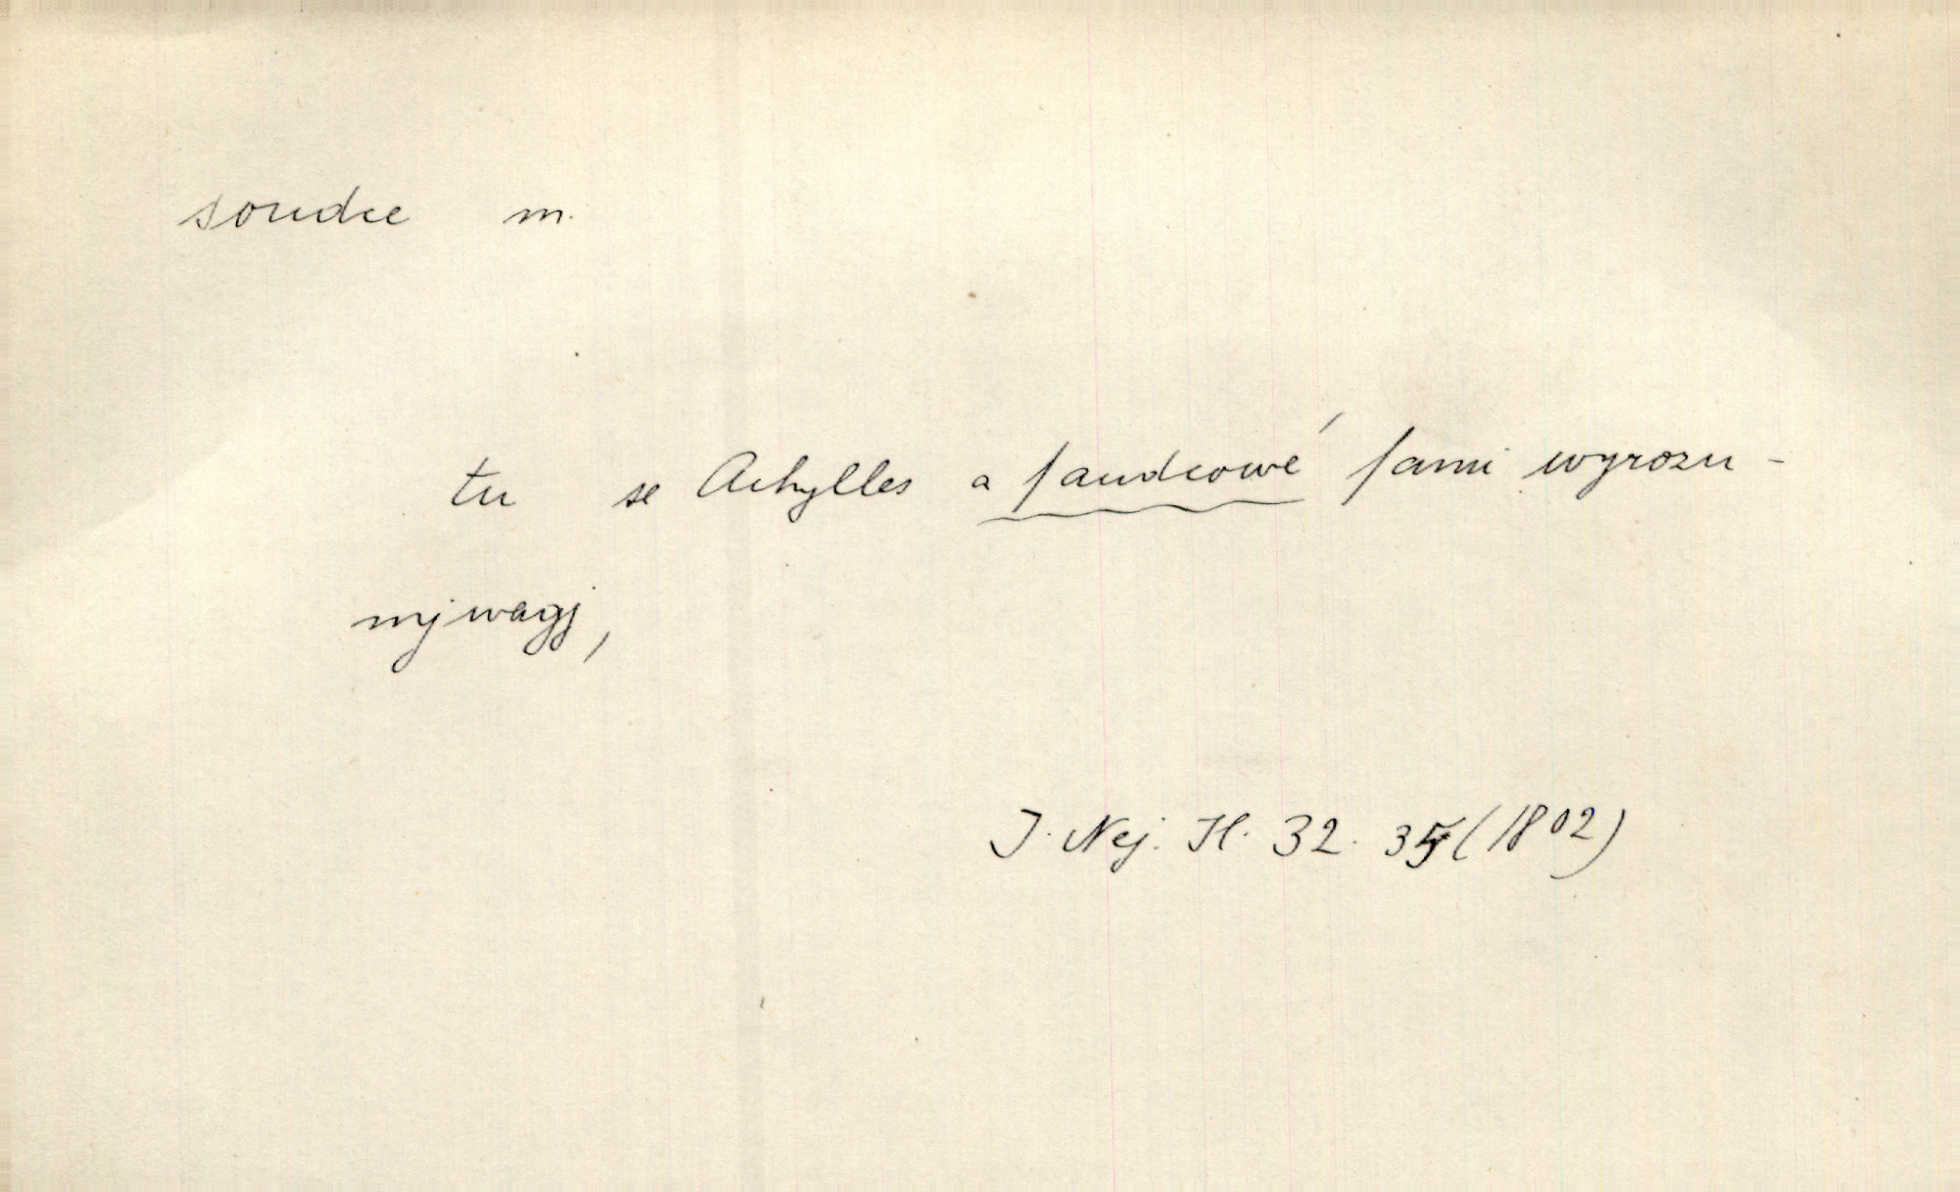 soudce m.
tu se Achylles a ſaudcowé ſami wyrozu-
mjwagj,
J. Nej. Il. 32. 35 (1802)